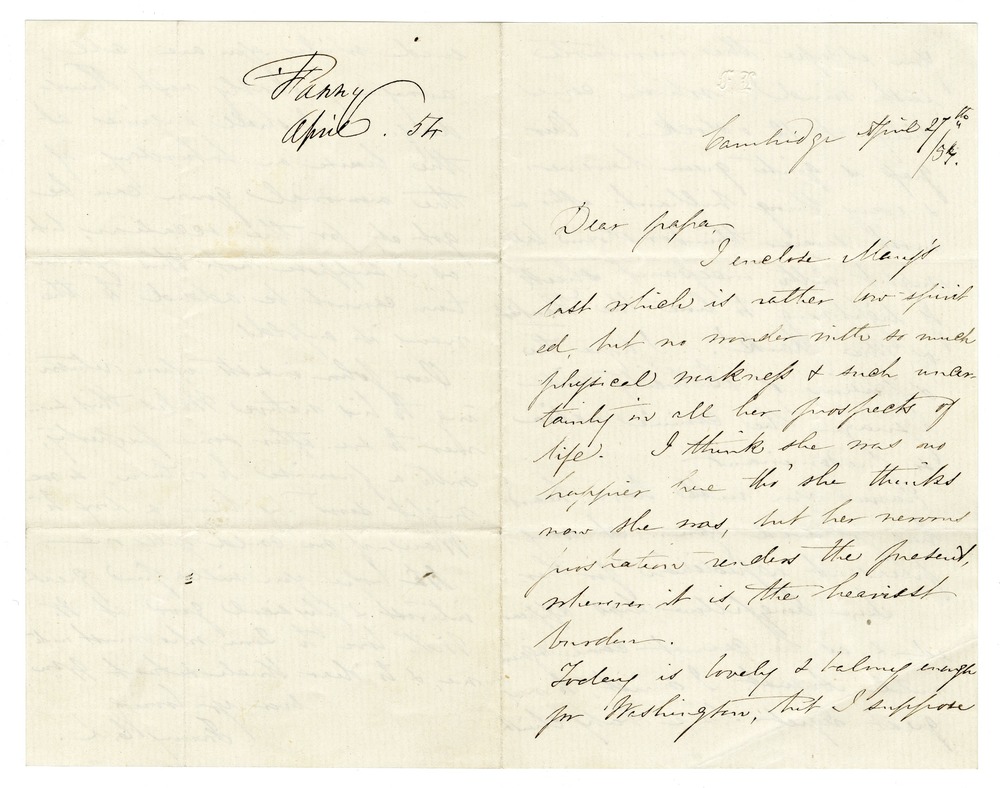 Fanny
April. 54
Cambridge April 27th
/54.
Dear papa,
I enclose Mary's
last which is rather low spirit
ed, but no wonder with so much
physical weakness & such uncer-
tainty in all her prospects of
life. I think she was no
happier here tho' she thinks
now she was, but her nervous
prostration renders the present,
wherever it is, the heaviest
burden.
Today is lovely & balmy enough
for Washington, but I suppose